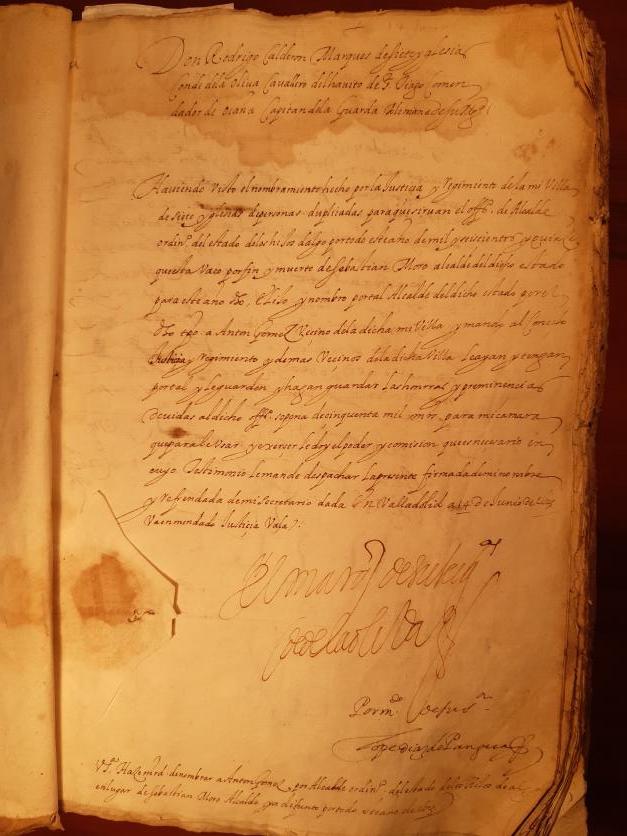 Don Rodrigo Calderon Marques de siete yglesias
Conde dela Oliva Cavallero del havito de S. Tiago Comen
dador de Ocaña Capitan dela Guarda Alemana de su Mag.d
Haviendo Visto el nombramiento hecho por la Justicia y Regimiento de la mi Villa
de Siete yglesias de personas duplicadas para que sirvan el offº. de Alcalde
ordinº. del estado de los hijos dalgo por todo este año de mil y seiscientos y quinze
que esta Vaco por fin y muerte de Sebastian Moro alcalde del dicho estado
para este año elijo y nombro por tal Alcalde del dicho estado por el
dho tpo. a Anton Gomez Vezino de la dicha mi Villa y mando al Concejo
Justicia y Regimiento y demas Vecinos de la dicha Villa le ayan y tengan
por tal y le guarden y hagan guardar las honrras y preminencias
devidas al dicho offº. so pena de cinquenta mil mrs. para mi camara
que para le Usar y exercer le doy el poder y comision que es necesario en
cuyo Testimonio le mande despachar la presente firmada de mi nombre
y Refrendada de mi Secretario dada En Valladolid a 14 de Junio de
Va enmendado Justicia Vala
El marq de siete ig
de de la oliva
Por mdo. de su sª.
Lope diaz de Pangua
V.S. Haze mrd de nombrar a Anton Gomez por Alcalde ordinº. del estado de los Hijos de al
en lugar de Sebastian Moro Alcalde ya difunto por todo este año de